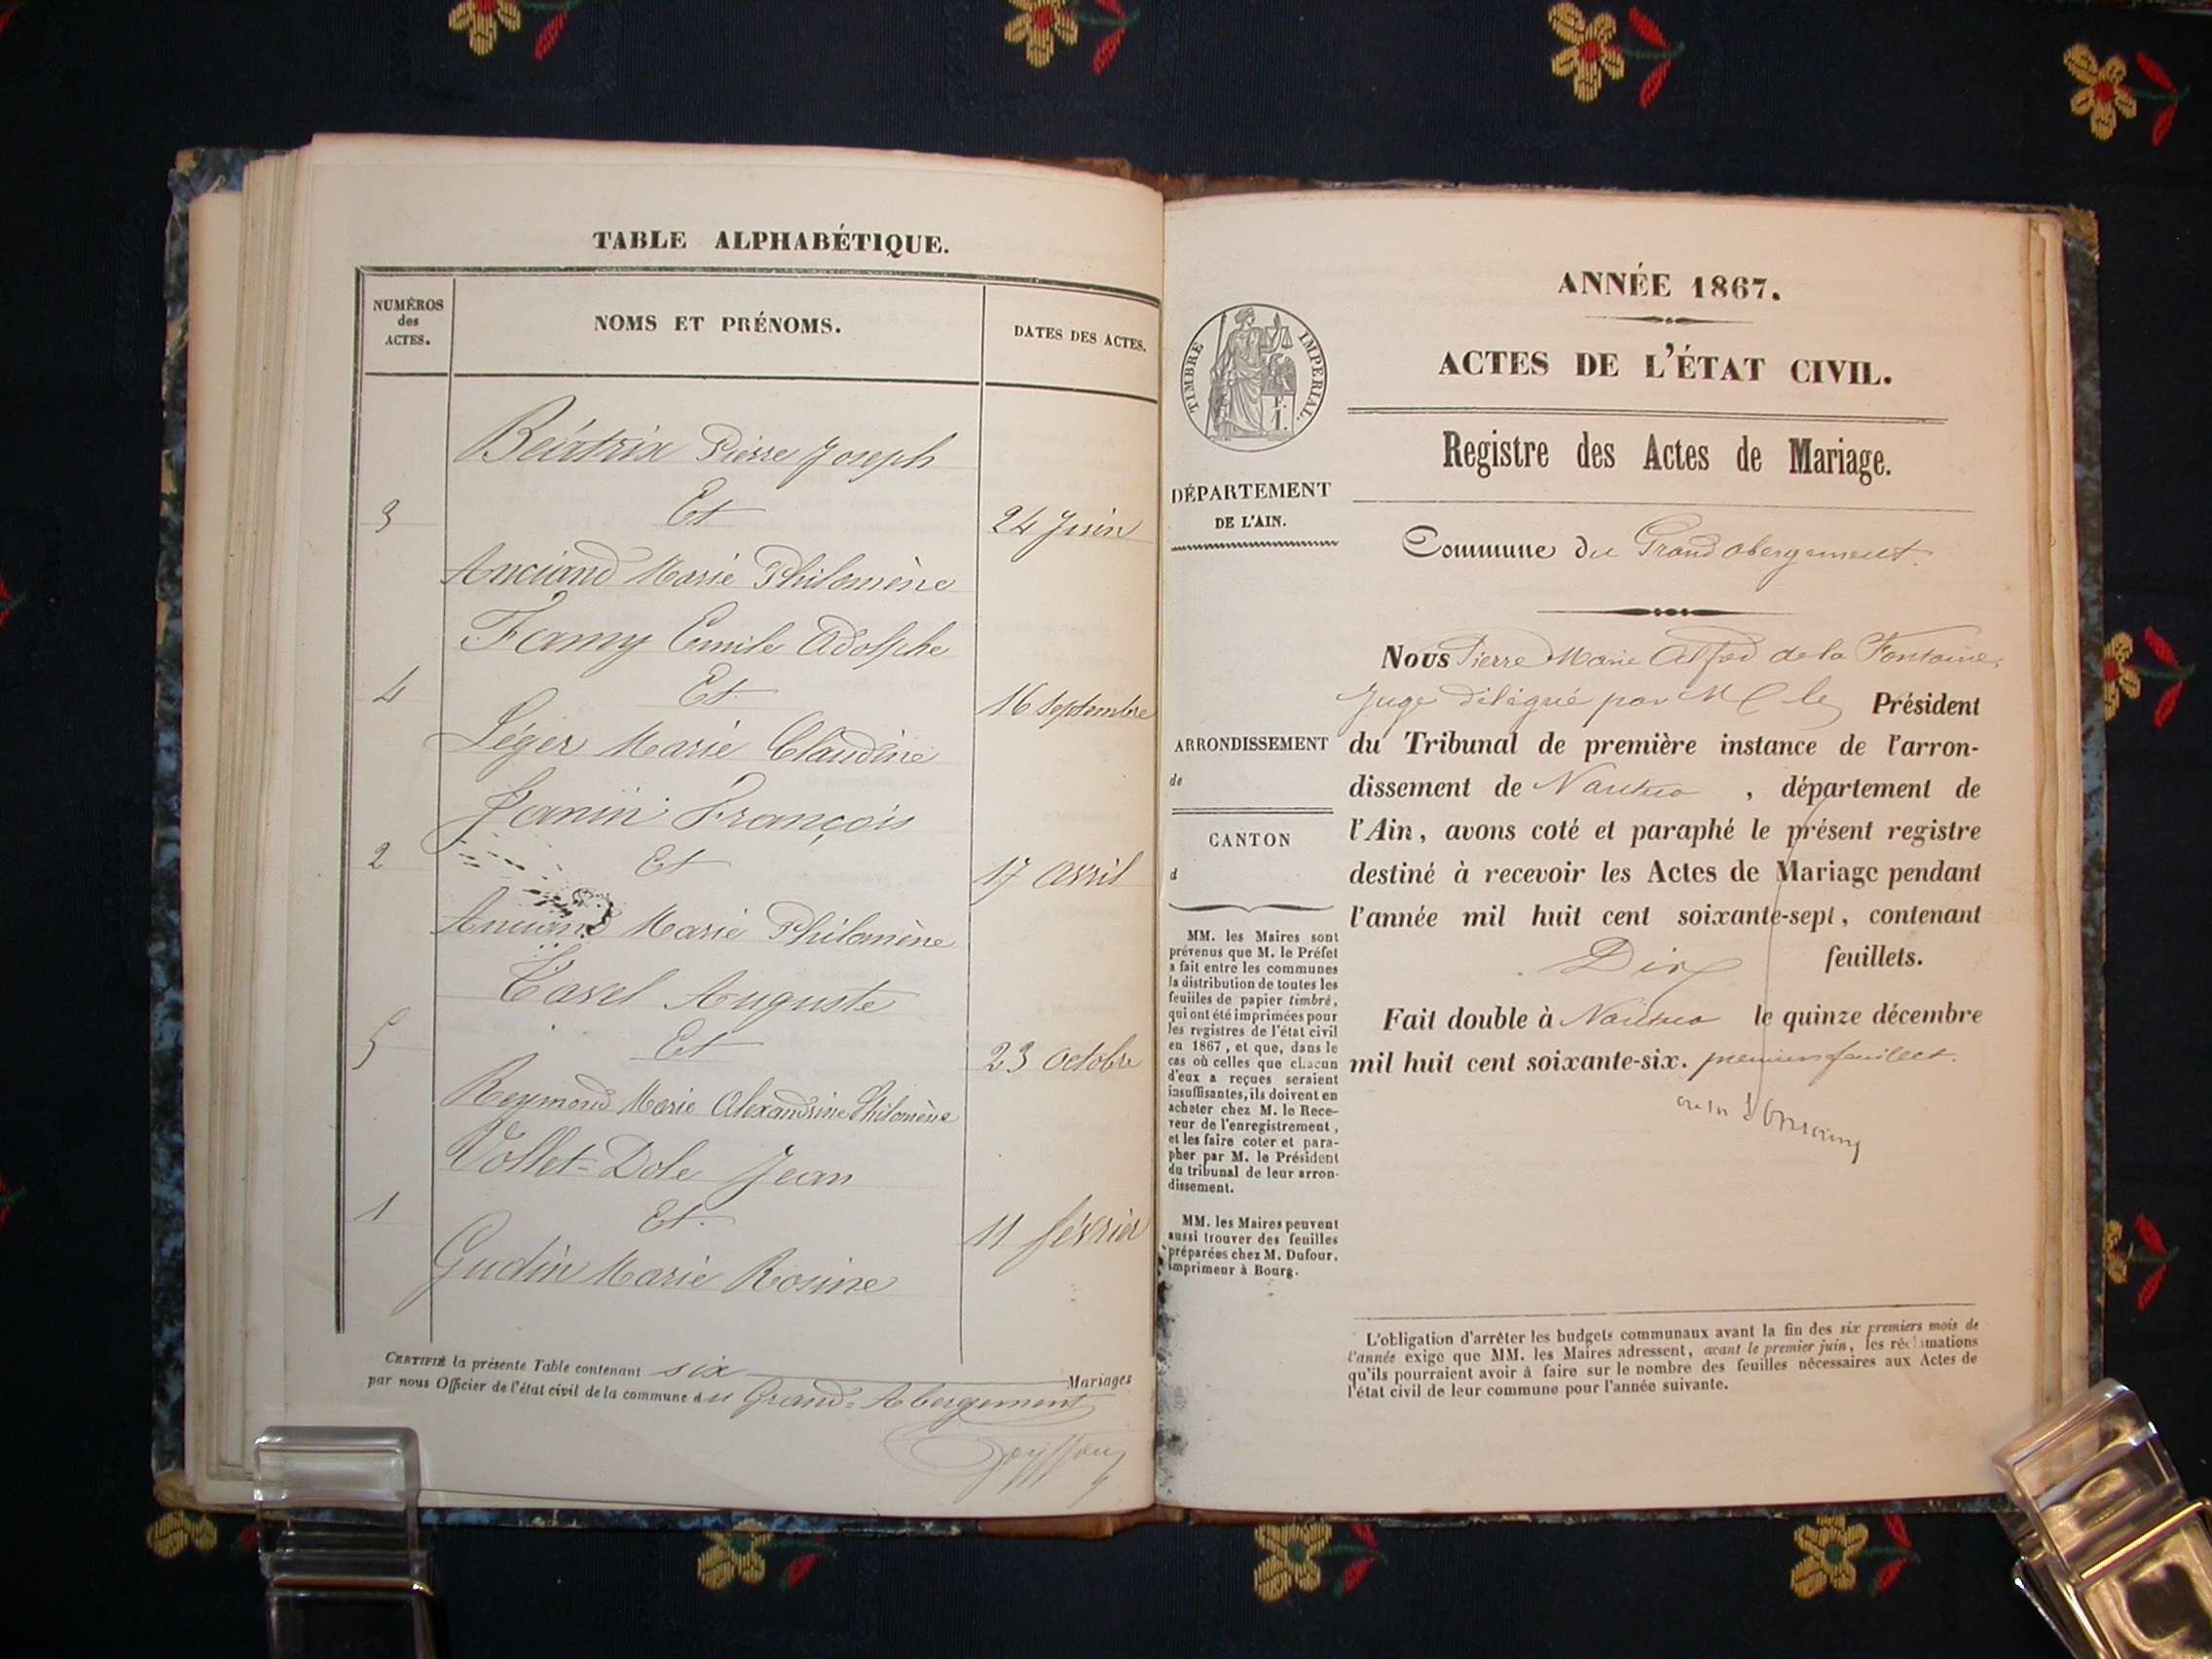 TABLE ALPHABÉTIQUE.
NUMÉROS
des
ACTES.
NOMS ET PRÉNOMS.
DATES DES ACTES.
Béatrix Pierre Joseph
3 Et 24 Juin
Anciand Marie Philomène
Famy Emile Adolphe
4 Et 16 Septembre
Léger Marie Claudine
Janin François
2 Et 17 Avril
Anciand Marie Philomène
Cavel Auguste
5 Et 23 Octobre
Reymond Marie Alexandrine Philomène
Vollet=Dole Jean
1 Et 11 février
Gudin Marie Rosine
CERTIFIÉ la présente Table contenant six Mariages
par nous Officier de l'état civil de la commune du Grand=Abergement
TIMBRE IMPÉRIAL.
F.
1.
DÉPARTEMENT
DE L'AIN.
ARRONDISSEMENT
de
CANTON
d
MM. les Maires sont
prévenus que M. le Préfet
a fait entre les communes
la distribution de toutes les
feuilles de papier timbré,
qui ont été imprimées pour
les registres de l'état civil
en 1867, et que, dans le
cas où celles que chacun
d'eux a reçues seraient
insuffisantes, ils doivent en
acheter chez M. le Rece-
veur de l'enregistrement,
et les faire coter et para-
pher par M. le Président
du tribunal de leur arron-
dissement.
MM. les Maires peuvent
aussi trouver des feuilles
préparées chez M. Dufour,
imprimeur à Bourg.
ANNÉE 1867.
ACTES DE L'ÉTAT CIVIL.
Registre des Actes de Mariage.
Commune du Grand abergement.
Nous Pierre Marie Alfred de la Fontaine,
Juge délégué par M le Président
du Tribunal de première instance de l'arron-
dissement de Nantua , département de
l'Ain, avons coté et paraphé le présent registre
destiné à recevoir les Actes de Mariage pendant
l'année mil huit cent soixante-sept, contenant
Dix feuillets.
Fait double à Nantua le quinze décembre
mil huit cent soixante-six. premier feuillet.
L'obligation d'arrêter les budgets communaux avant la fin des six premiers mois de
l'année exige que MM. les Maires adressent, avant le premier juin, les réclamations
qu'ils pourraient avoir à faire sur le nombre des feuilles nécessaires aux Actes de
l'état civil de leur commune pour l'année suivante.